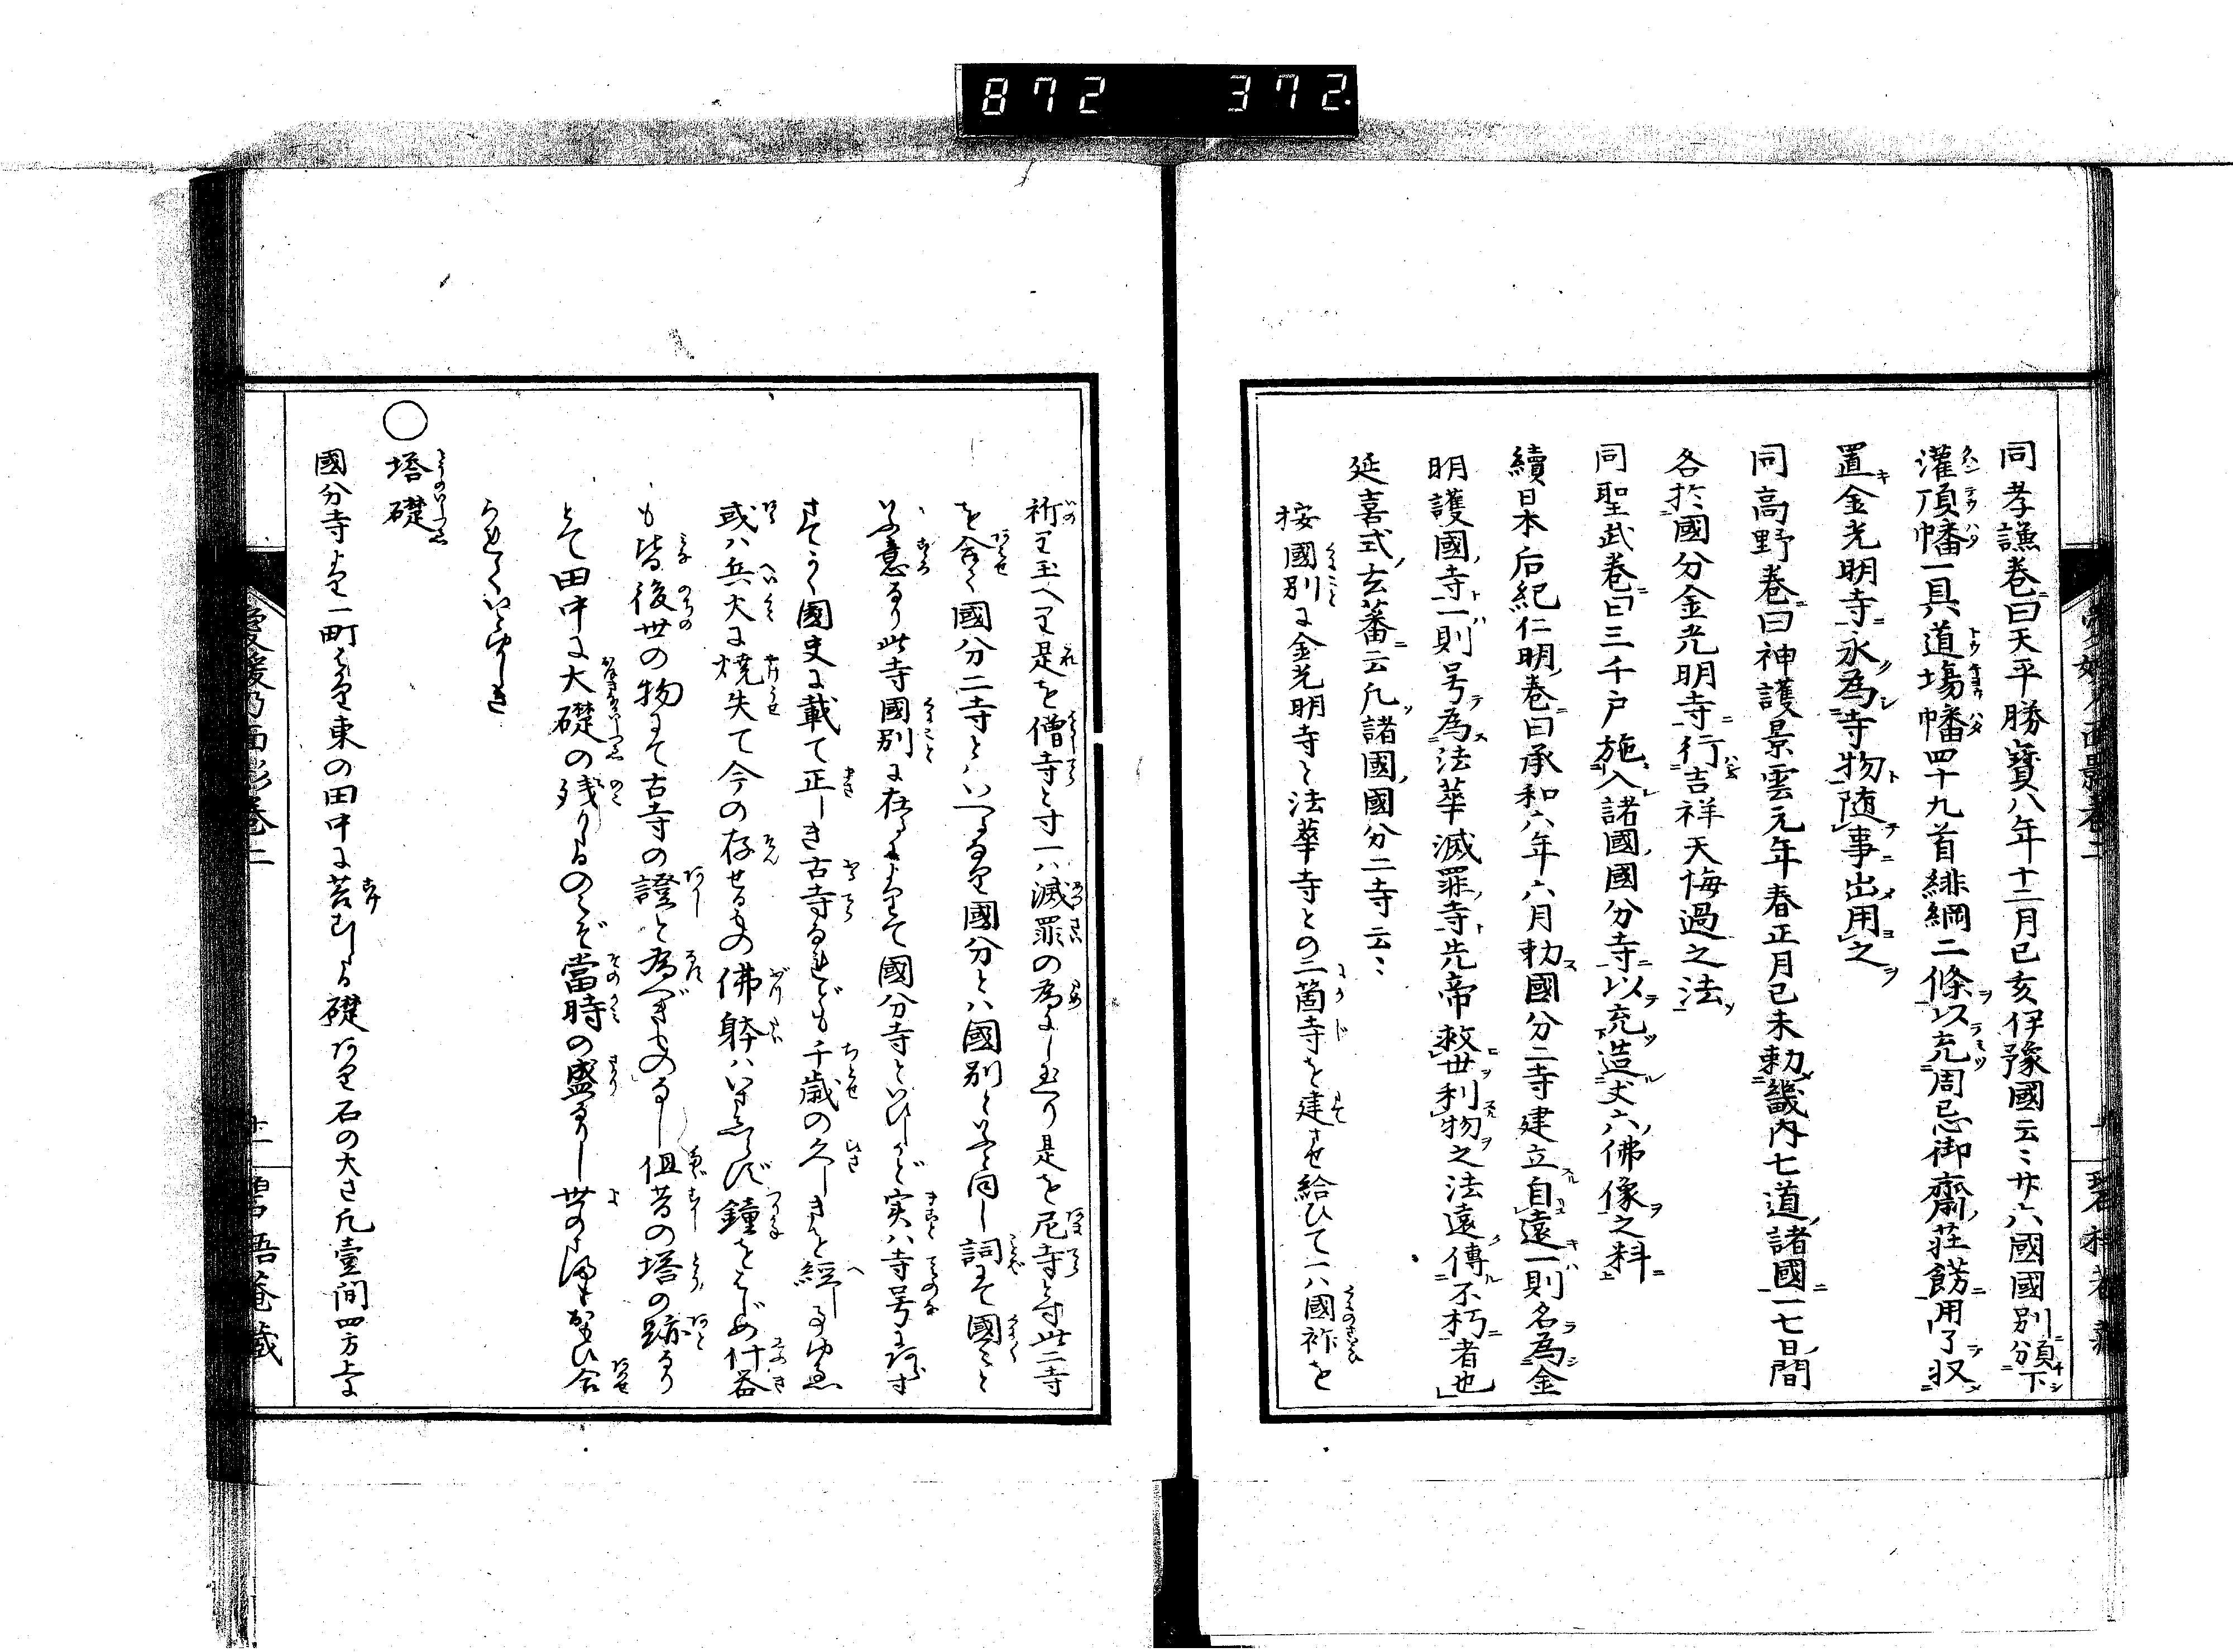 872 372.
同孝謙巻曰天平勝寳八年十二月已亥伊豫國云〻廿六國國別頒下
灌頂幡一具道場幡四十九首緋綱二條以充周忌御齋莊餝用了収
置金光明寺永為寺物随事出用之
同高野巻曰神護景雲元年春正月已未勅畿内七道諸國一七日間
各於國分金光明寺行吉祥天悔過之法
同聖武巻曰三千戸施入諸國國分寺以充造丈六佛像之料
續日本后紀仁明巻曰承和六年六月勅國分二寺建立自遠一則名為金
明護國寺一則号為法華滅罪寺先帝救世利物之法遠傳不朽者也
延喜式玄蕃云凡諸國國分二寺云〻
按國別に金光明寺と法華寺との二箇寺を建させ給ひて一八國祚を
祈り玉へり是を僧寺とす一八滅罪の為にし玉り是を尼寺とす此二寺
を合て國分二寺とハいへるなり國分とハ國別といふと同し詞にて國〻と
いふ意なり此寺國別に在るによりて國分寺といひしかど実ハ寺号にあらす
さてかく國史に載て正しき古寺なれども千歳の久しきを經しゆゑ
或ハ兵火に焼失て今の存せるものの佛躰ハいさしらず鐘をはじめ什器
も皆後世の物にて古寺の證と為べきものなし但昔の塔の跡なり
とて田中に大礎の残りたるのみぞ當時の盛なりし世のさまもおもひ合
られていとゆかしき
○塔礎
國分寺より一町はかり東の田中に苔むしたる礎あり石の大さ凡壹间四方上に
愛媛乃面影巻二
十二
碧梧菴藏